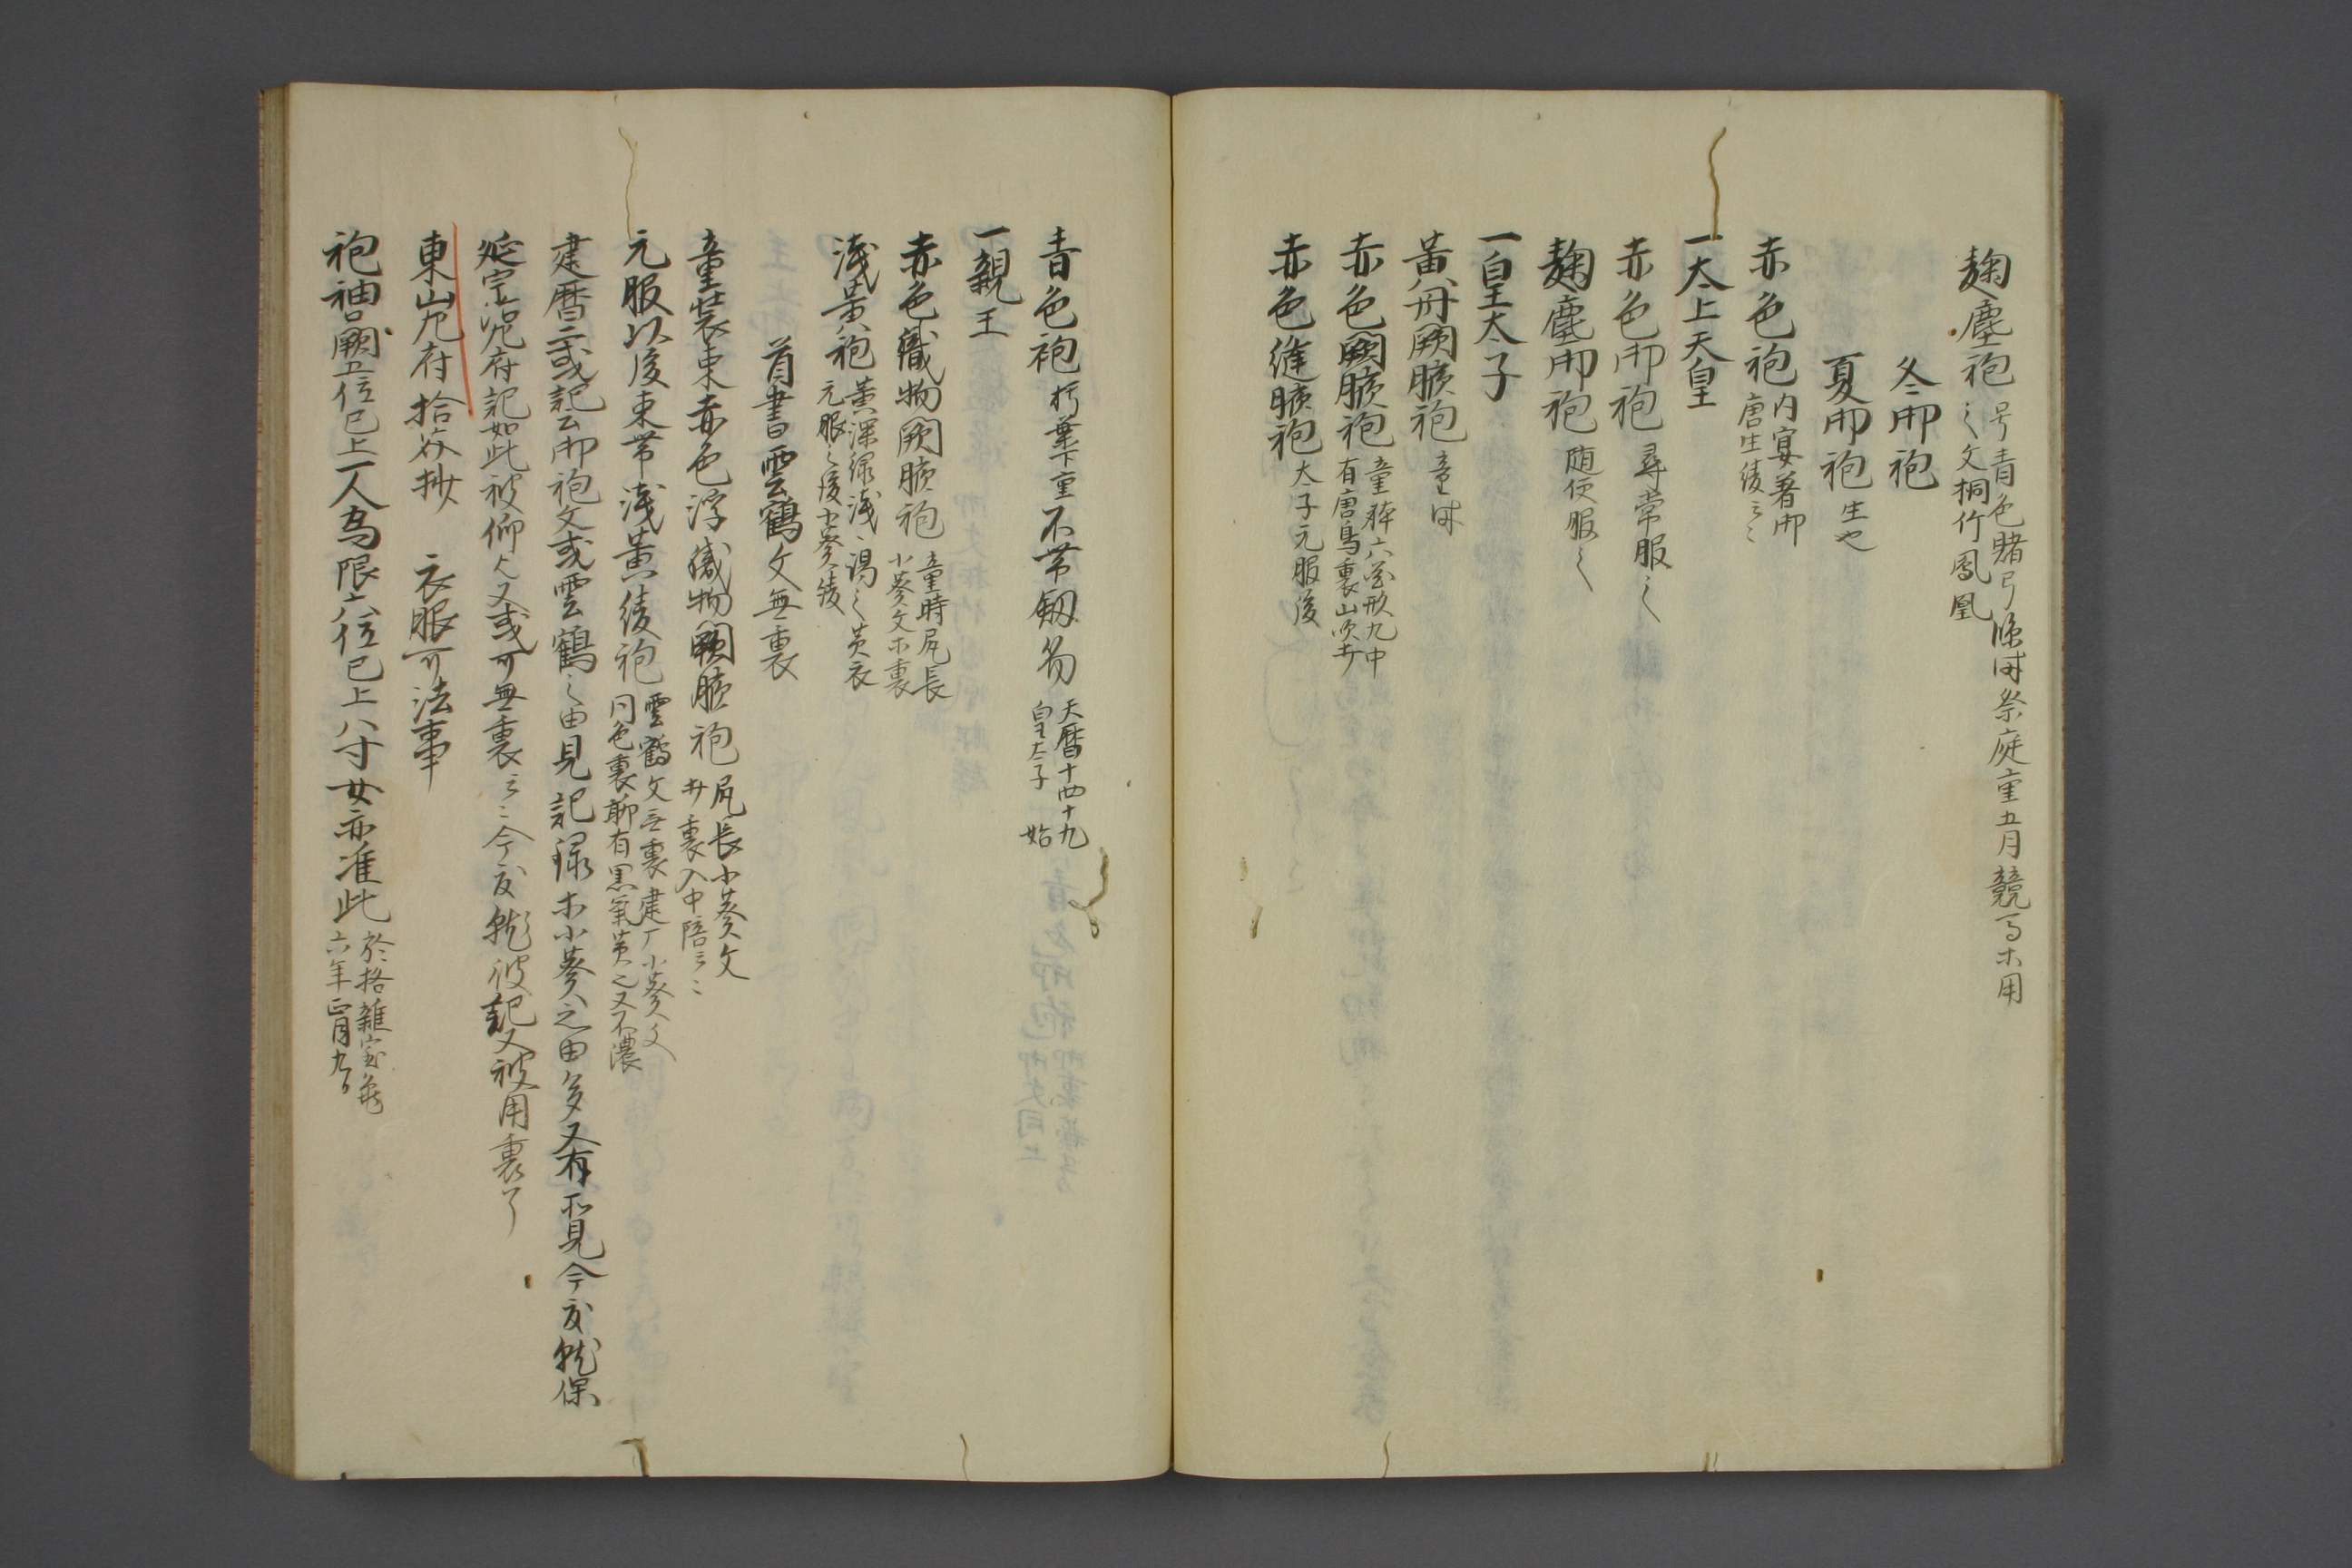 麹塵袍 号青色賭弓臨時祭庭童五月競馬ホ用
之文桐竹鳳凰
冬御袍
夏御袍 生也
赤色袍 内宴著御
唐生綾云々
一太上天皇
赤色御袍 尋常服之
麹塵御袍 随便服之
一皇太子
黄丹闕腋袍 童時
赤色闕腋袍 童躰六
有唐鳥裏山吹
赤色縫腋袍 太子元服後
青色袍 朽葉下重不帯釼笏 天暦十四十九
皇太子 始
一親王
赤色織物闕腋袍 童時尻長
小葵文ホ裏
浅黄袍 黄深緑浅々謂之黄衣
元服之後小葵綾
首書雲鶴文無裏
童装束赤色浮織物闕腋袍 尻長小葵文
裏入中陪云々
元服以後束帯浅黄綾袍 雲鶴文無裏建小葵文
同色裏聊有黒氣黄之又不濃
建暦二或記云御袍文或雲鶴之由見記録ホ小葵之由多又有所見今度就保
延宇治左府記如此被仰又或可無裏云々今度就彼記又被用裏了
東山左府拾芥抄 衣服可法事
袍袖口闊五位已上一人為限六位已上八寸女亦准此 於格雑宝亀
六年正月九日